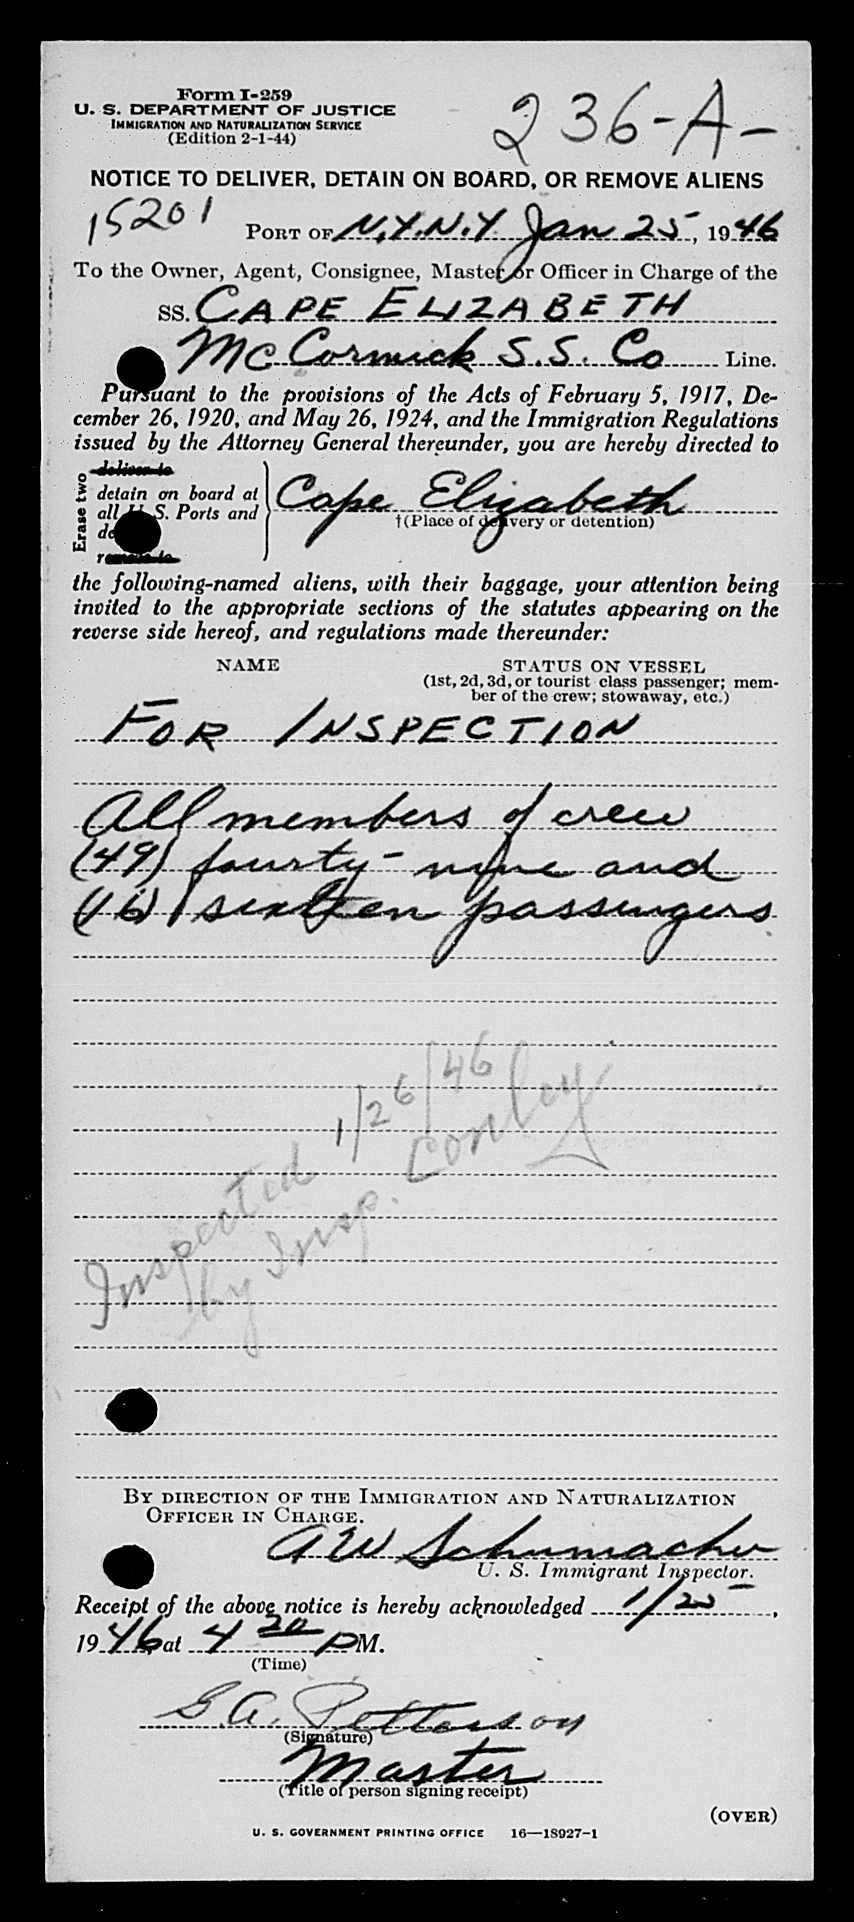 Form I-259
U. S. DEPARTMENT OF JUSTICE
IMMIGRATION AND NATURALIZATION SERVICE
(Edition 2-1-44)
236-A-
NOTICE TO DELIVER, DETAIN ON BOARD, OR REMOVE ALIENS
15201
PORT OF N.Y.N.Y. Jan 25, 1946
To the Owner, Agent, Consignee, Master or Officer in Charge of the
SS. CAPE ELIZABETH
McCormick S.S. Co Line.
Pursuant to the provisions of the Acts of February 5, 1917, De-
cember 26, 1920, and May 26, 1924, and the Immigration Regulations
issued by the Attorney General thereunder, you are hereby directed to
Erase two
deliver to
detain on board at
all U. S. Ports and
Cape Elizabeth
†(Place of delivery or detention)
remove to
the following-named aliens, with their baggage, your attention being
invited to the appropriate sections of the statutes appearing on the
reverse side hereof, and regulations made thereunder:
NAME STATUS ON VESSEL
(1st, 2d, 3d, or tourist class passenger; mem-
ber of the crew; stowaway, etc.)
FOR INSPECTION
All members of crew
(49) fourty-nine and
(16) sixteen passengers
Inspected 1/26/46
by Insp. Conley
BY DIRECTION OF THE IMMIGRATION AND NATURALIZATION
OFFICER IN CHARGE.
A W Schumacher
U. S. Immigrant Inspector.
Receipt of the above notice is hereby acknowledged 1/25,
1946 at 4 20 PM.
(Time)
G.A. Petterson
(Signature)
Master
(Title of person signing receipt)
(OVER)
U. S. GOVERNMENT PRINTING OFFICE 16—18927-1